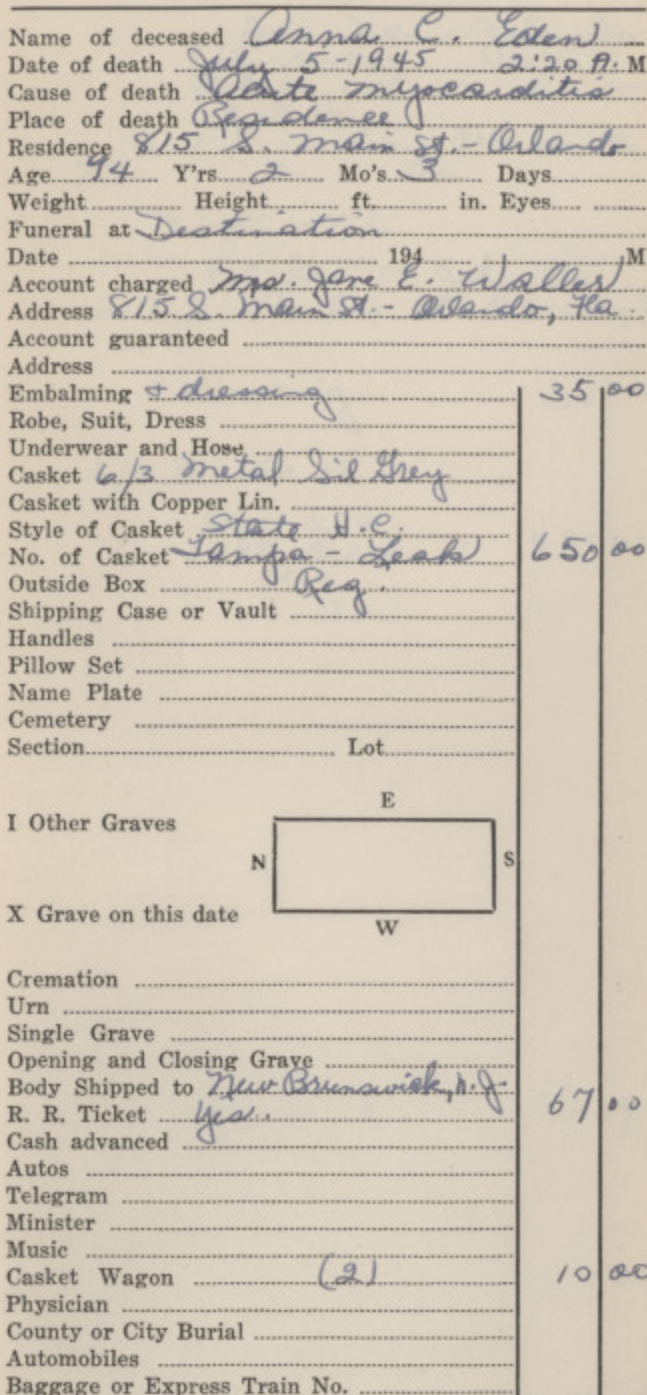 Name of deceased Anna C. Eden
Date of death July 5-1945 2:20 A. M
Cause of death Acute myocarditis
Place of death Residence
Residence 815 S. Main St. - Orlando
Age 94 Y'rs 2 Mo's 3 Days
Weight Height ft. in. Eyes
Funeral at Destination
Date 194 M
Account charged Mrs. Jane E. Waller
Address 815 S. Main St. - Orlando, Fla.
Account guaranteed
Address
Embalming & dressing 35 00
Robe, Suit, Dress
Underwear and Hose
Casket 6/3 Metal Sil Grey
Casket with Copper Lin.
Style of Casket State H.C.
No. of Casket Tampa - 650 00
Outside Box Reg.
Shipping Case or Vault
Handles
Pillow Set
Name Plate
Cemetery
Section Lot
E
I Other Graves
N S
X Grave on this date
W
Cremation
Urn
Single Grave
Opening and Closing Grave
Body Shipped to New Brunswick, N.J.
R. R. Ticket Yes. 67 00
Cash advanced
Autos
Telegram
Minister
Music
Casket Wagon (2) 10 00
Physician
County or City Burial
Automobiles
Baggage or Express Train No.